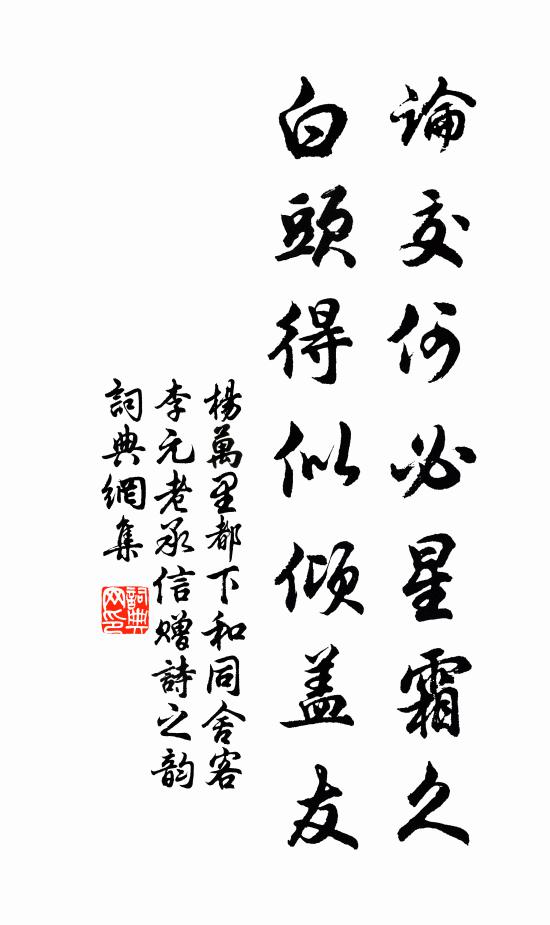 論交何必星霜久
白頭得似傾盖友
楊萬里都下和同舍客
李元老承信贈詩之韵
詞典網集
詞典
网印